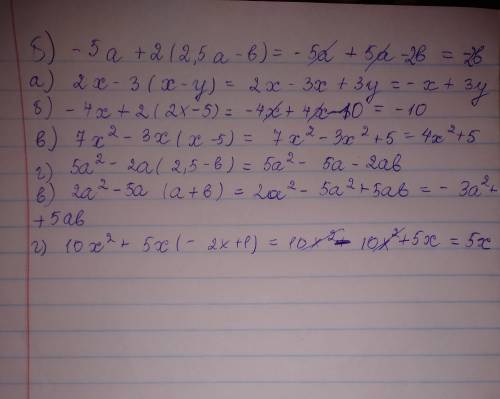 б) - 5a + 2 (2,5a - в) = - 5a + 5a - 2в = -2в
а) 2x - 3 (x - y) = 2x - 3x + 3y = - x + 3y
б) - 4x + 2 (2x - 5) = - 4x + 4x - 10 = - 10
в) 7x² - 3x (x - 5) = 7x² - 3x² + 5 = 4x² + 5
г) 5a² - 2a (2,5 - в) = 5a² - 5a - 2aв
в) 2a² - 5a (a + в) = 2a² - 5a² + 5aв = - 3a² +
+ 5aв
г) 10x² + 5x (- 2x + 1) = 10x² - 10x² + 5x = 5x